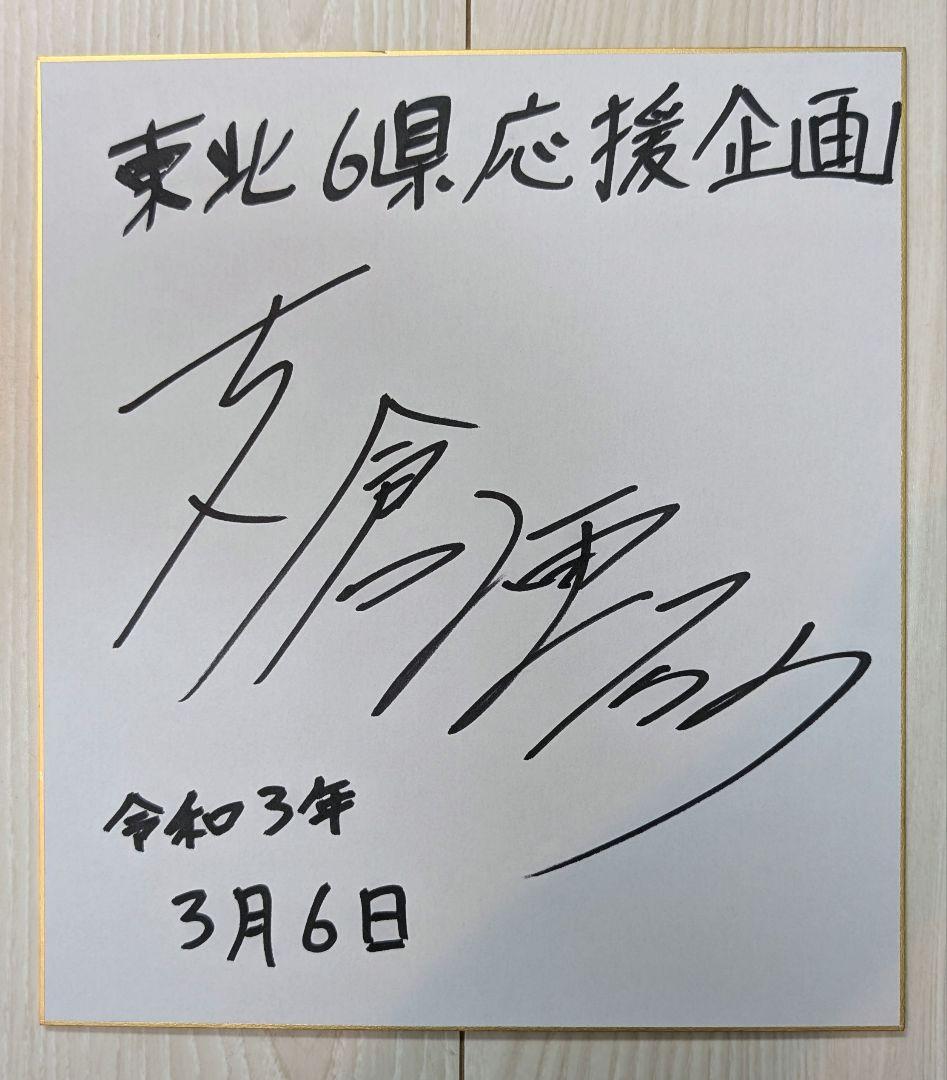 東北6県応援企画
令和3年
3月6日